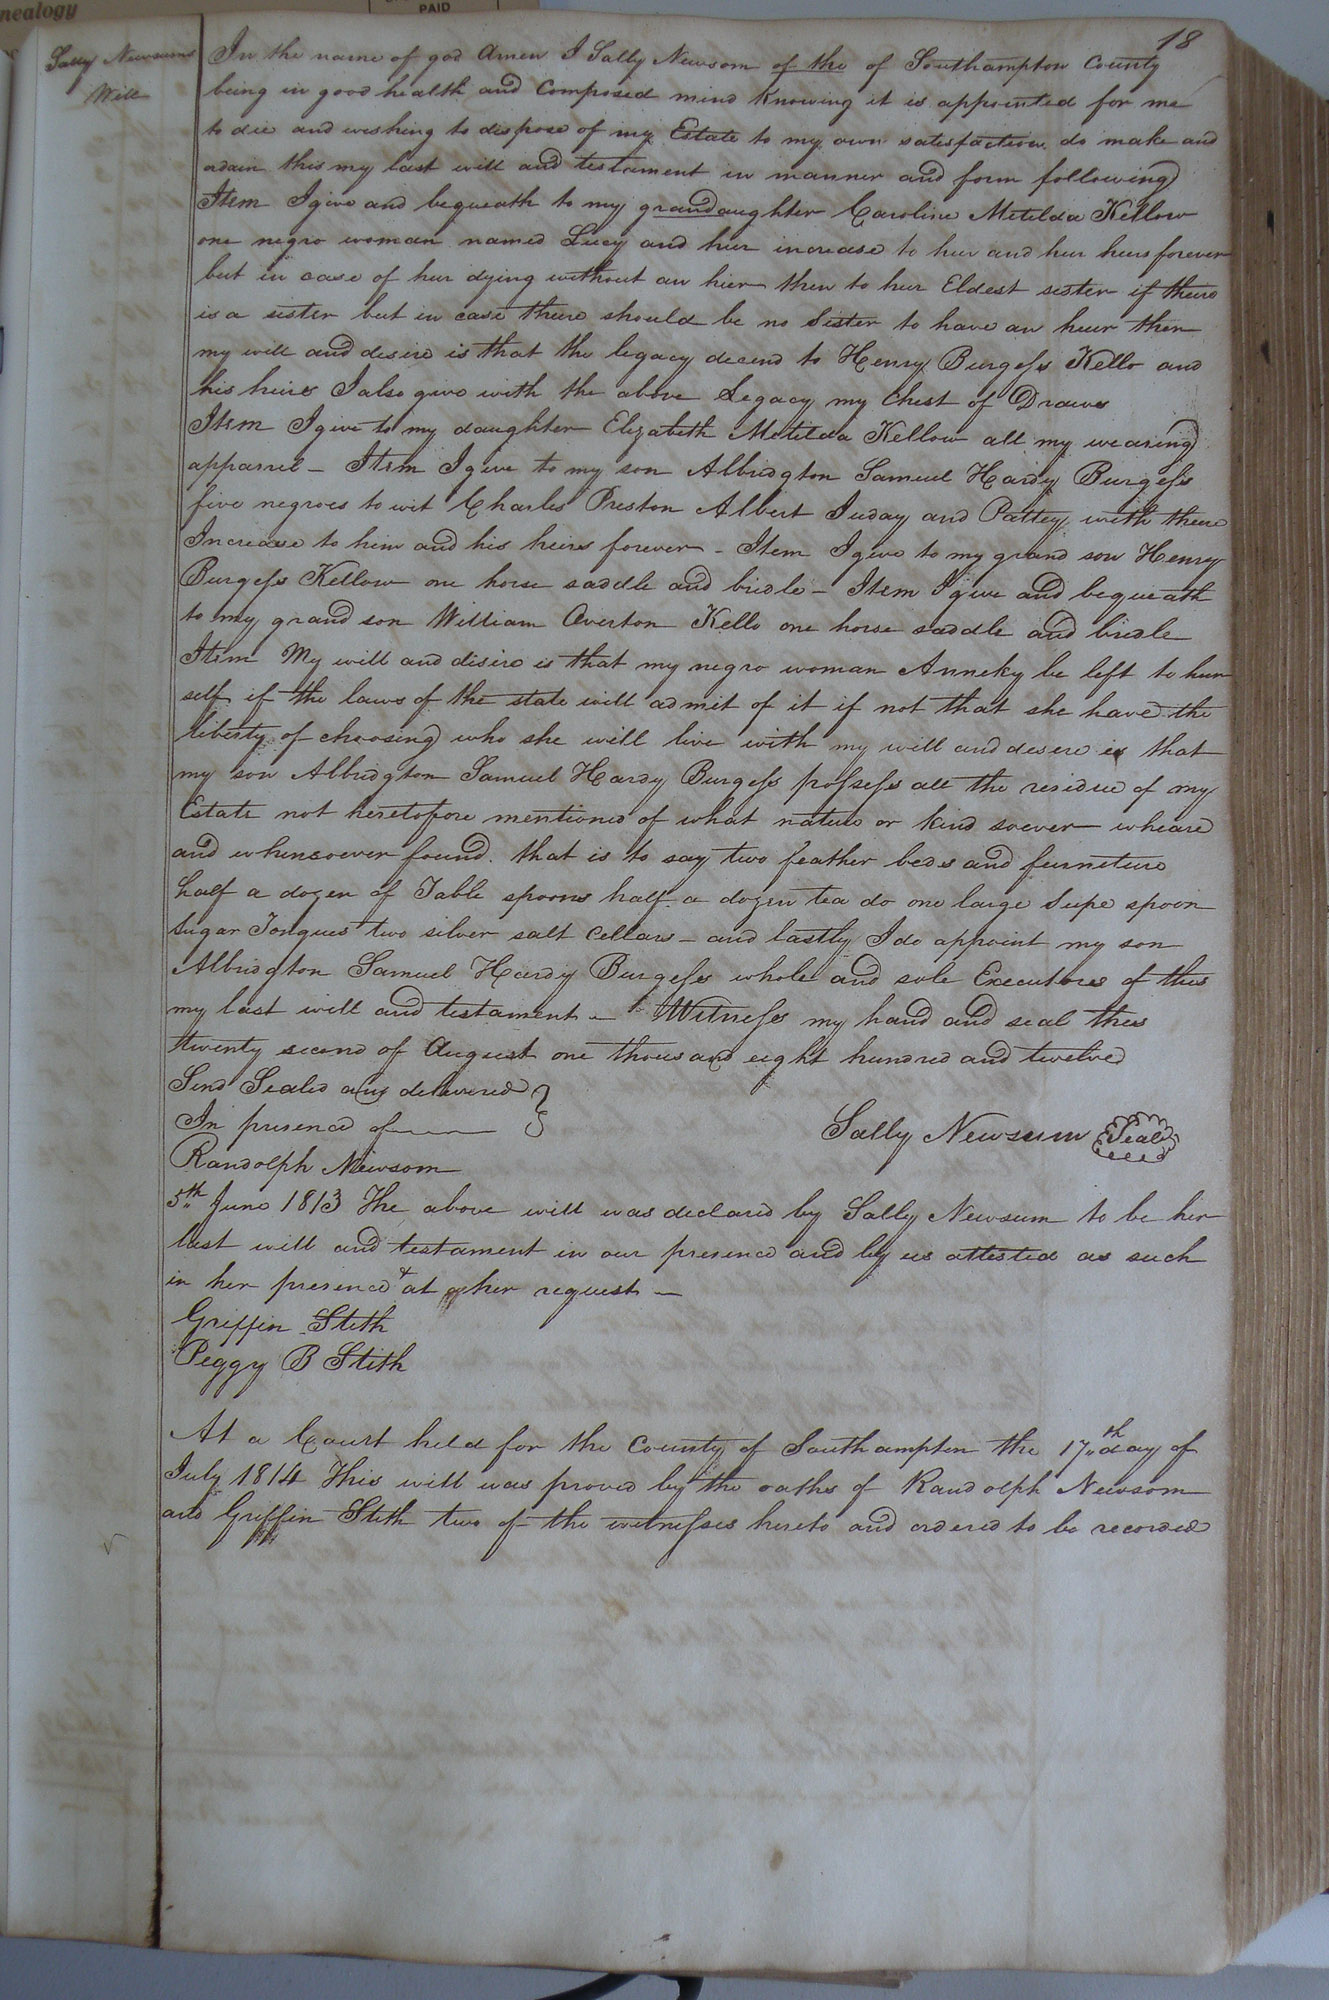 nealogy
PAID
18
Sally Newsums
Will
In the name of god Amen I Sally Newsom of the of Southampton County
being in good health and Composed mind Knowing it is appointed for me
to die and wishing to dispose of my Estate to my own satisfaction do make and
adain this my last will and testament in manner and form following
Item I give and bequeath to my grandaughter Caroline Metilda Kellow
one negro woman named Lucy and hur increase to hur and hur heirs forever
but in case of hur dying without an hier then to hur Eldest sister if there
is a sister but in case there should be no Sister to have an heur then
my will and desire is that the legacy decend to Henry Burgess Kello and
his heirs I also give with the above Legacy my Chest of Drawes
Item I give to my daughter Elizabeth Metilda Kellow all my wearing
apparrel - Item I give to my son Albridgton Samuel Hardy Burgess
five negroes to wit Charles Preston Albert Juday and Pattey with there
Increase to him and his heirs forever - Item I give to my grand son Henry
Burgess Kellow one horse saddle and bridle - Item I give and bequeath
to my grand son William Overton Kello one horse saddle and bridle
Item My will and disire is that my negro woman Anneky be left to hur
self if the laws of the state will admit of it if not that she have the
liberty of choosing who she will live with my will and desere is that
my son Albridgton Samuel Hardy Burgess possess all the residue of my
Estate not heretofore mentioned of what nature or kind soever wheare
and whensoever found. that is to say two feather beds and furneture
half a dozen of Table spoons half a dozen tea do one large Supe spoon
sugar Tongues two silver salt Cellars - and lastly I do appoint my son
Albridgton Samuel Hardy Burgess whole and sole Executores of this
my last will and testament - Witness my hand and seal thes
twenty second of August one thousand eight hundred and twelve
Send Sealed and delivered
In presence of
Sally Newsum Seal
Randolph Newsom
5th June 1813 The above will was declared by Sally Newsum to be her
last will and testament in our presence and by us attested as such
in her presence & at her request -
Griffin Stith
Peggy B Stith
At a Court held for the County of Southampton the 17th day of
July 1814 This will was proved by the oaths of Randolph Newsom
and Griffin Stith two of the witnesses hereto and ordered to be recorded